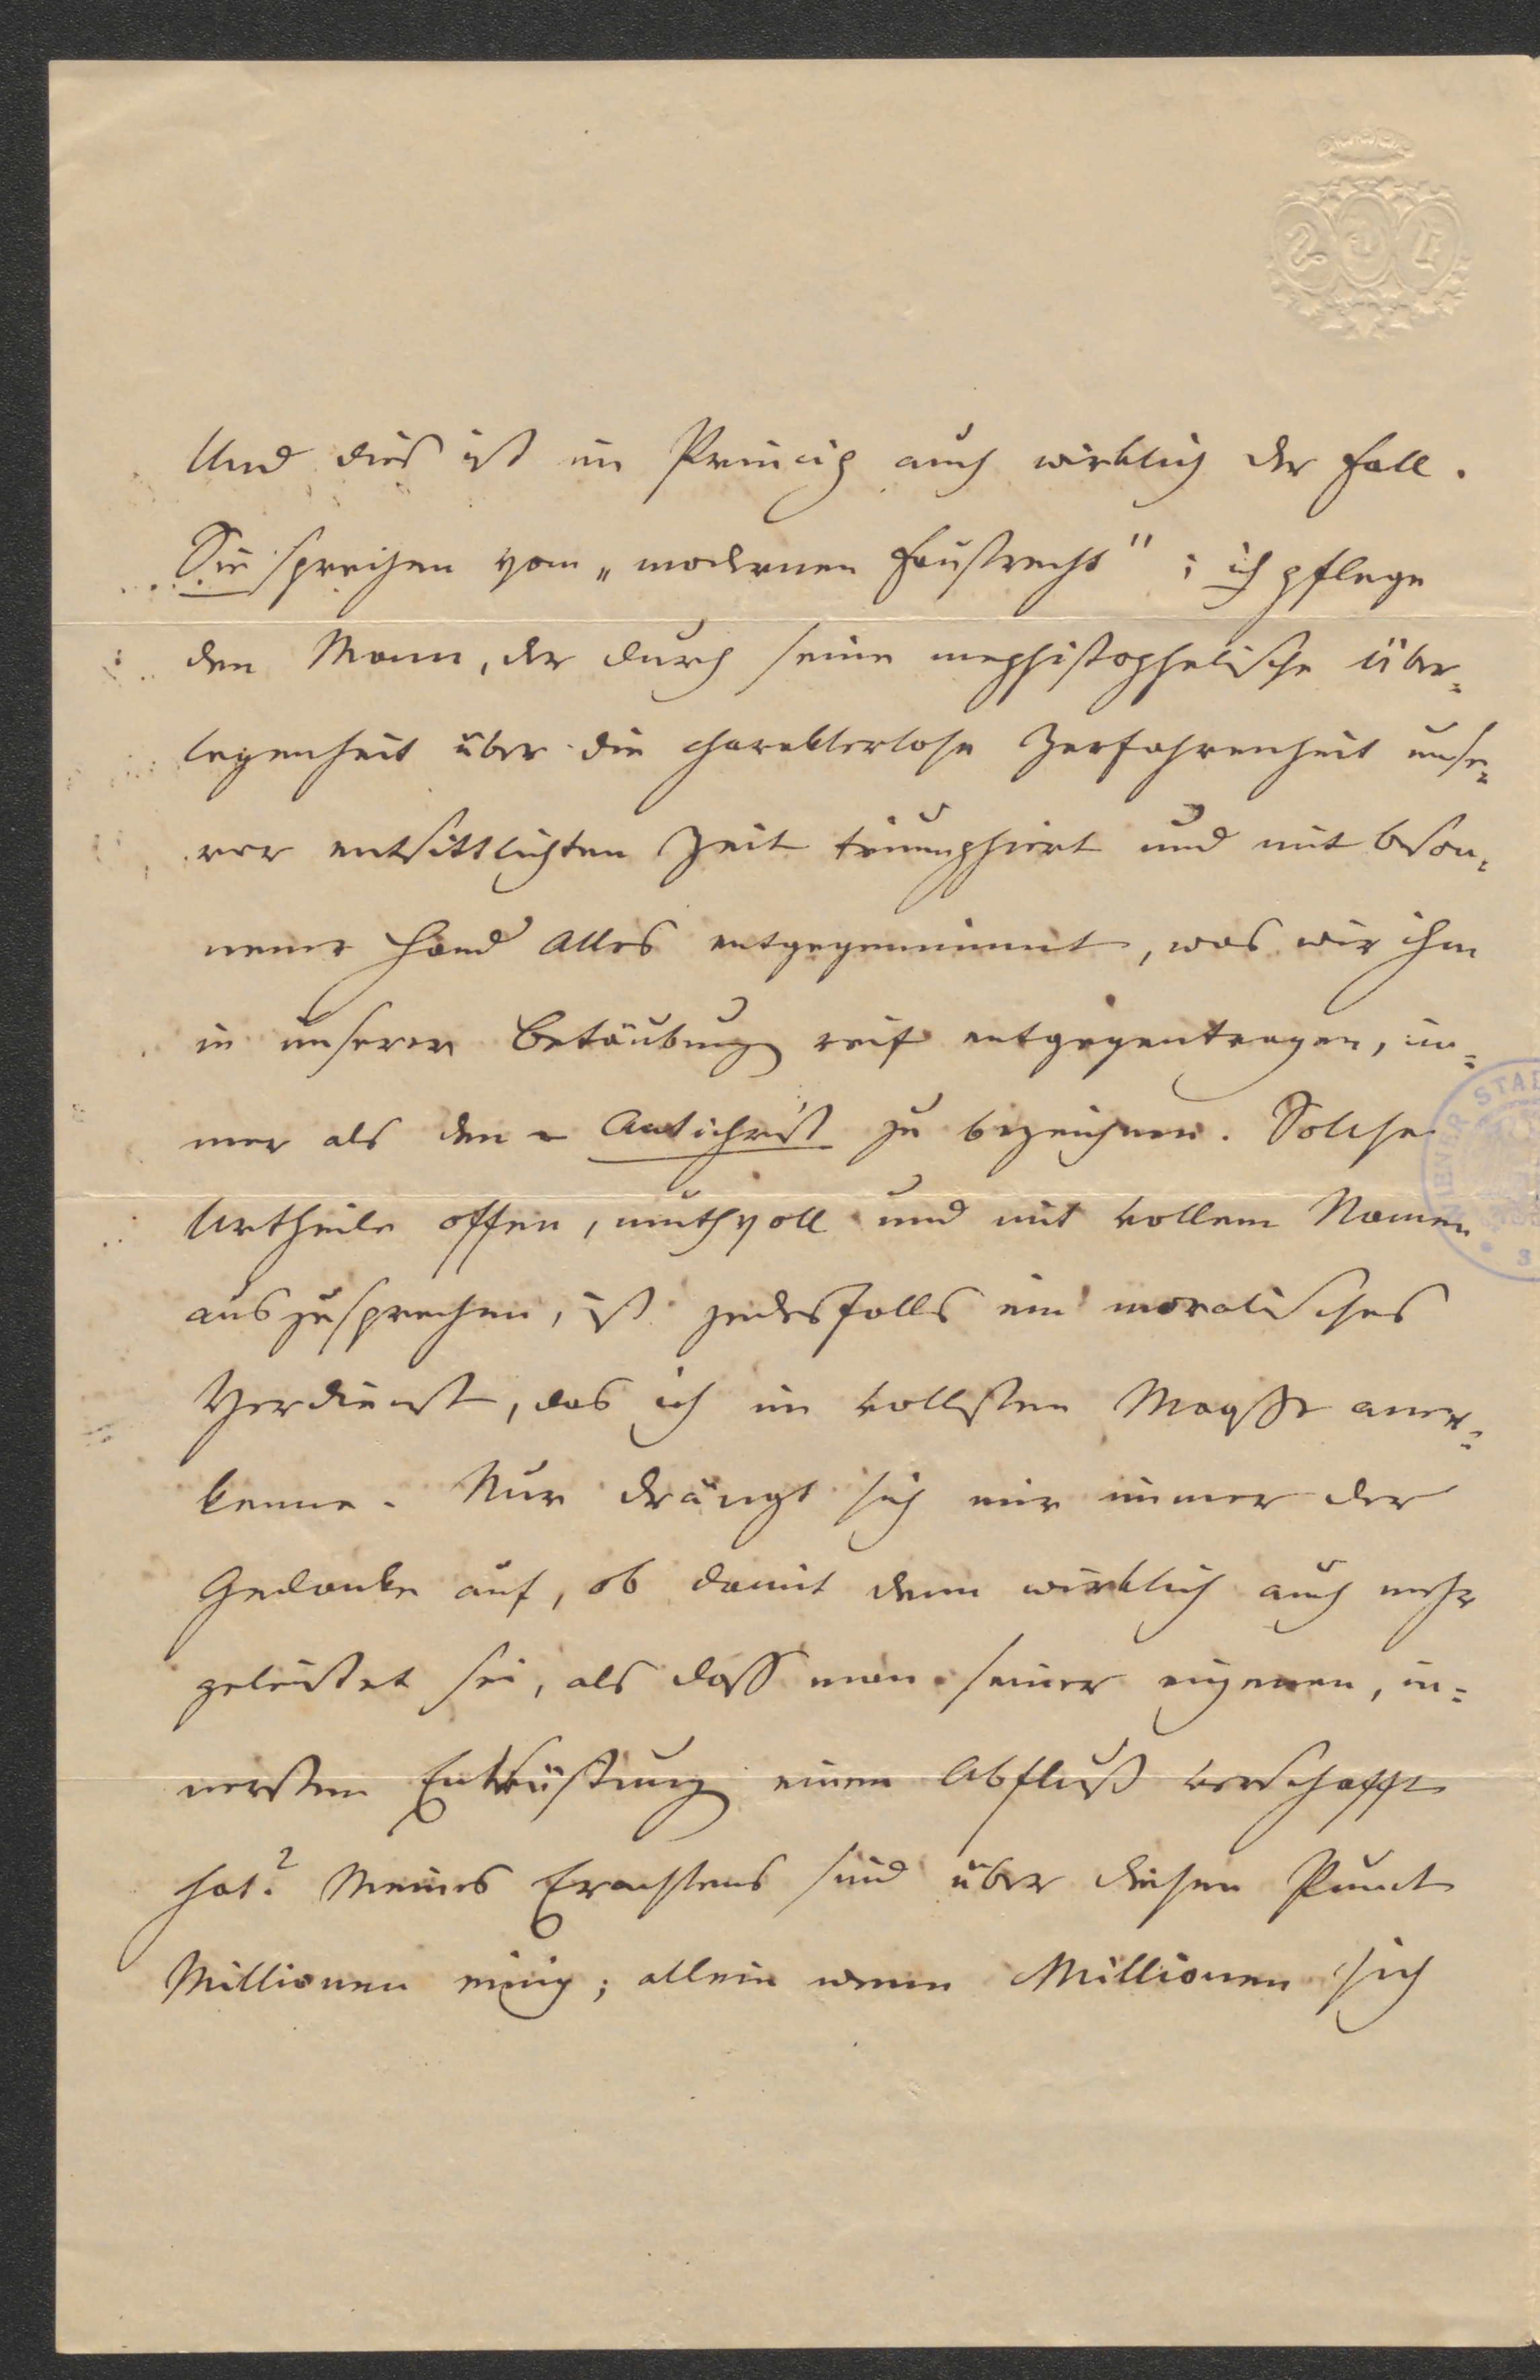 Und dies ist im Princip auch wirklich der Fall.
Sie sprechen vom „modernen Faustrecht"; ich pflege
den Mann, der durch seine mephistophelische Über=
legenheit über die charakterlose Zerfahrenheit unse=
rer entsittlichten Zeit triumphiert und mit beson=
nener Hand Alles entgegennimmt, was wir ihm
in unserer Betäubung reif entgegentragen, im=
mer als den Antichrist zu bezeichnen. Solche
Urtheile offen, muthvoll und mit vollem Namen
auszusprechen, ist jedesfalls ein moralisches
Verdienst, das ich im vollsten Maaße aner=
kenne. Nur drängt sich mir immer der
Gedanke auf, ob damit denn wirklich auch mehr
geleistet sei, als dass man seiner eigenen, in=
nersten Entrüstung einen Abfluß verschafft
hat? Meines Erachtens sind über diesen Punct
Millionen einig; allein wenn Millionen sich
WIENER STAD